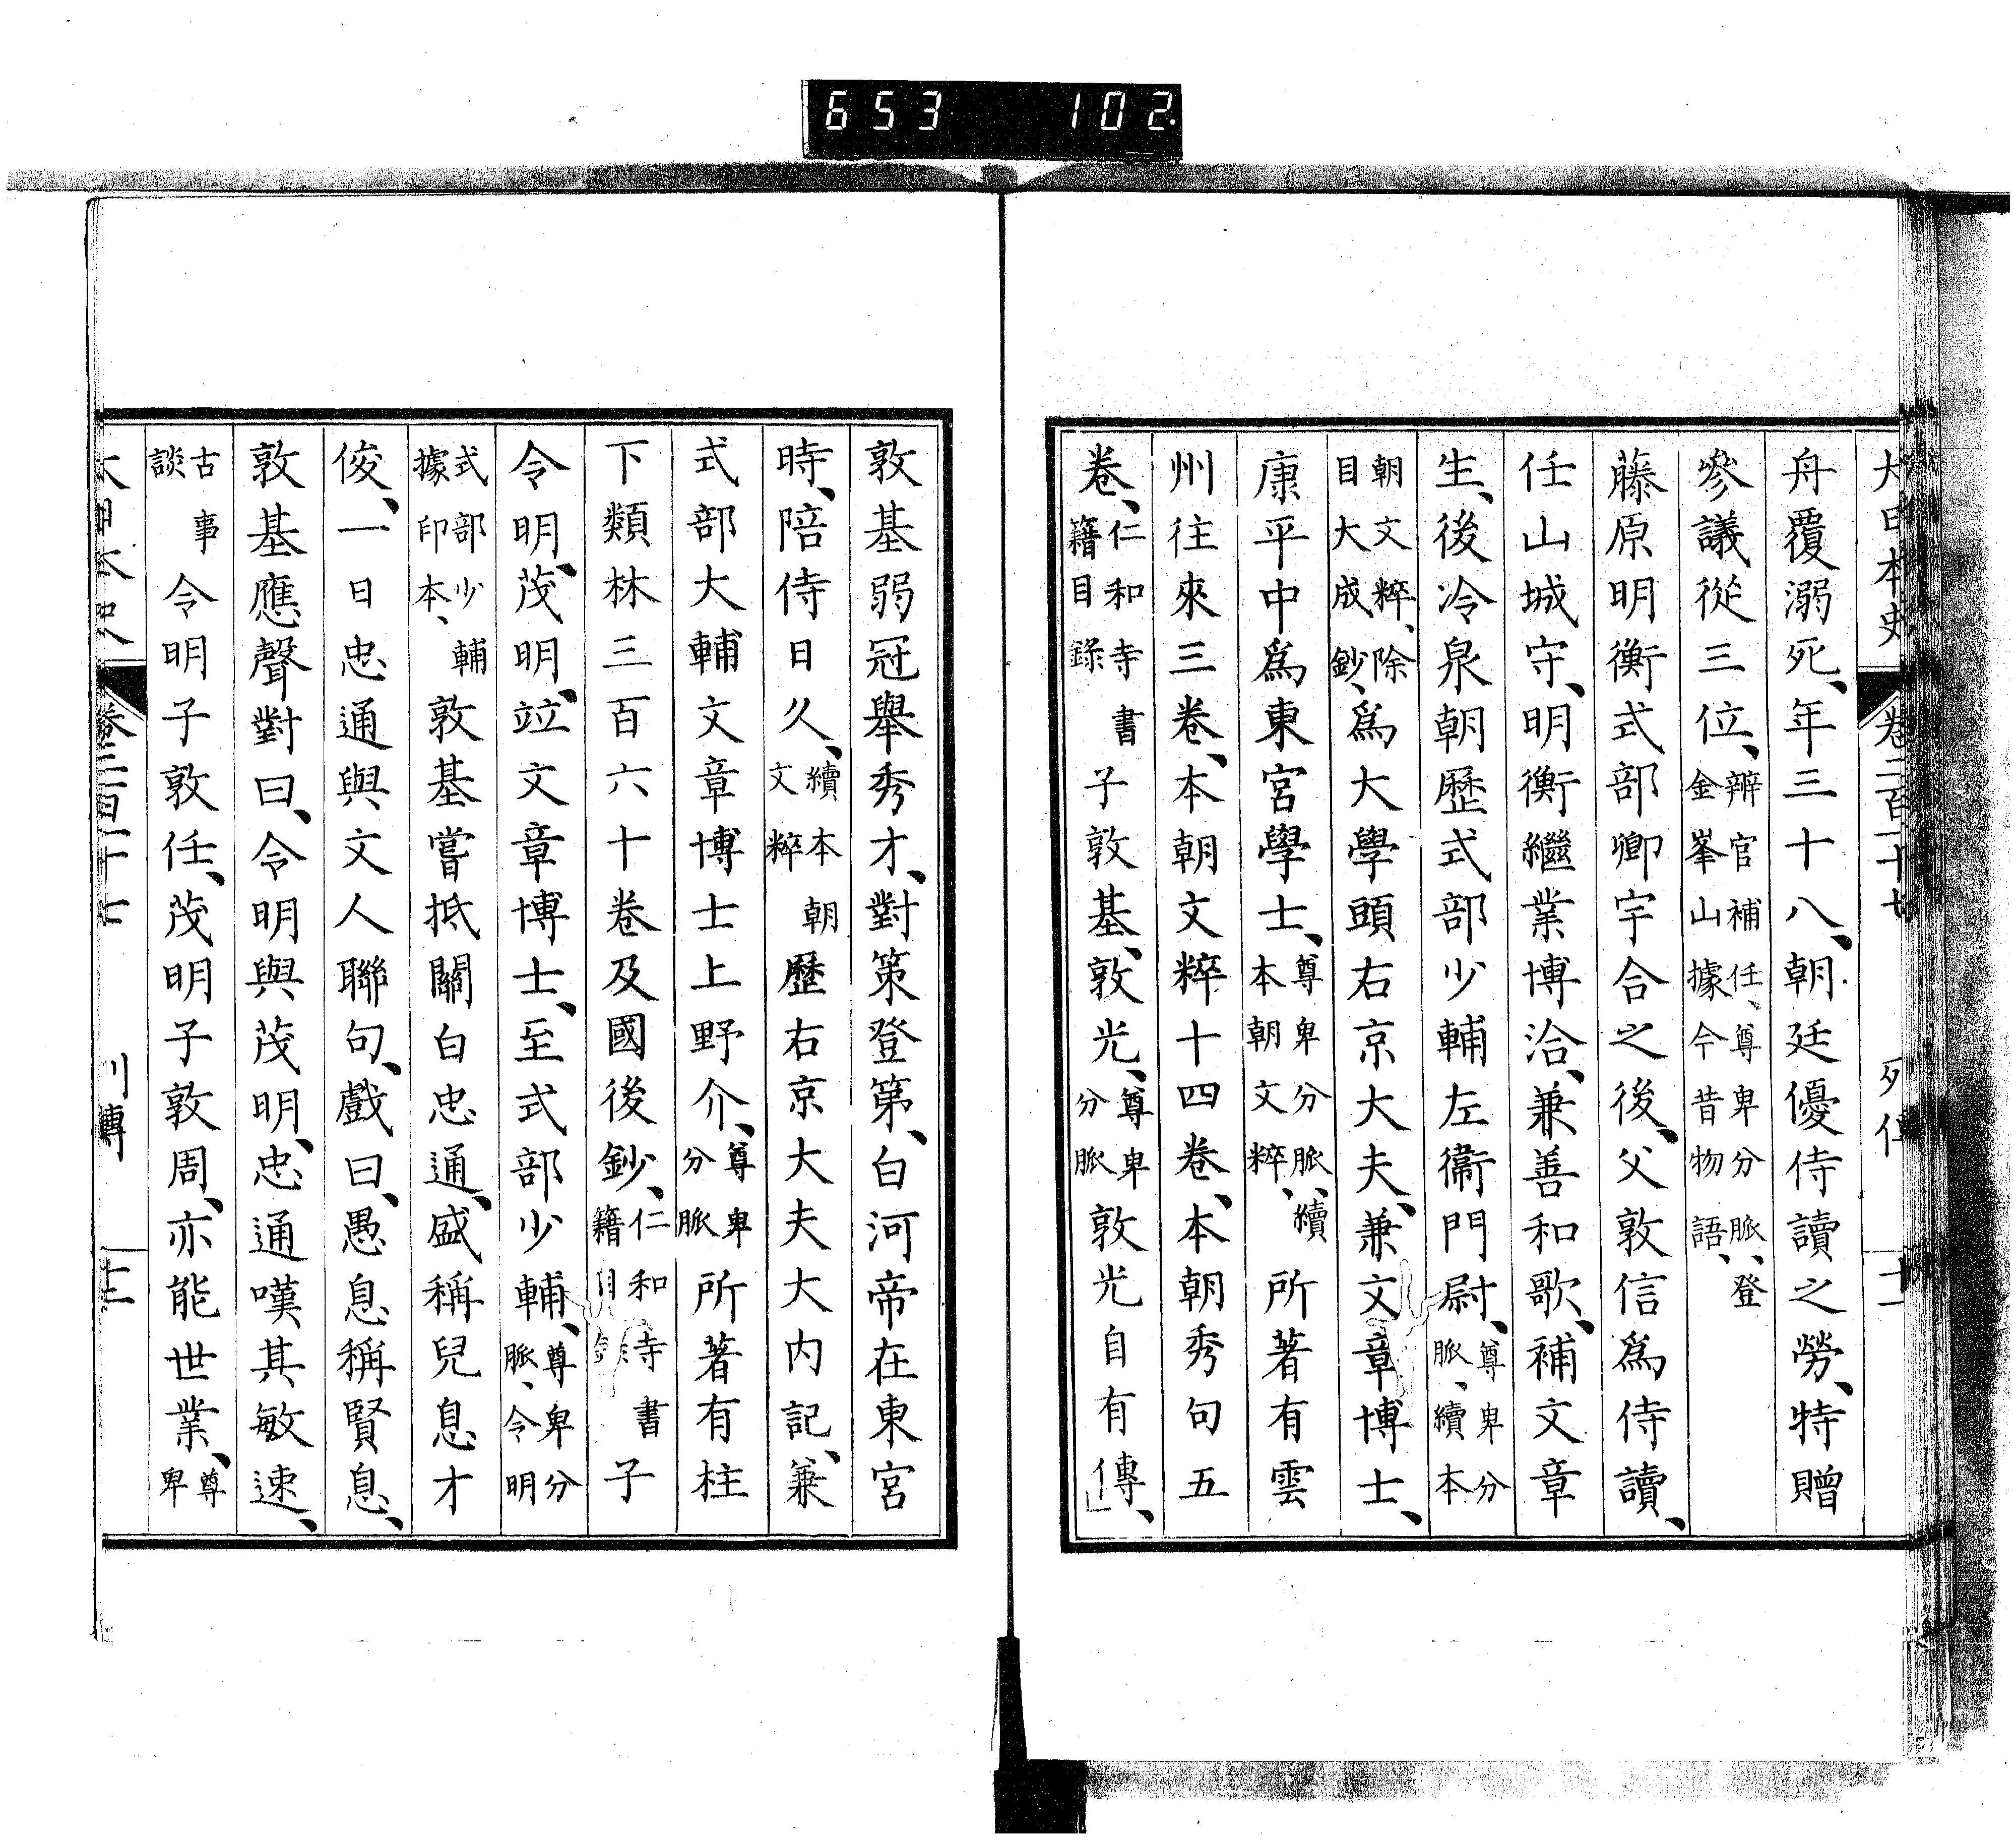 653 102
大日本史 卷二百十七 列傳 十一
舟覆溺死、年三十八、朝廷優侍讀之勞、特贈
參議從三位、辨官補任、尊卑分脈、登金峯山據今昔物語、
藤原明衡式部卿宇合之後、父敦信爲侍讀、
任山城守、明衡繼業博洽、兼善和歌、補文章
生、後冷泉朝歷式部少輔左衞門尉、尊卑分脈、續本
朝文粹、除目大成鈔、爲大學頭右京大夫、兼文章博士、
康平中爲東宮學士、尊卑分脈、續本朝文粹、所著有雲
州往來三卷、本朝文粹十四卷、本朝秀句五
卷、仁和寺書籍目錄子敦基、敦光、尊卑分脈敦光自有傳、」
敦基弱冠舉秀才、對策登第、白河帝在東宮
時、陪侍日久、續本朝文粹歷右京大夫大內記、兼
式部大輔文章博士上野介、尊卑分脈所著有柱
下類林三百六十卷及國後鈔、仁和寺書籍目錄子
令明、茂明、竝文章博士、至式部少輔、尊卑分脈、令明
式部少輔據印本、敦基嘗抵關白忠通、盛稱兒息才
俊、一日忠通與文人聯句、戲曰、愚息稱賢息、
敦基應聲對曰、令明與茂明、忠通嘆其敏速、
古事談令明子敦任、茂明子敦周、亦能世業、尊卑
大日本史 卷二百十七 列傳 十二